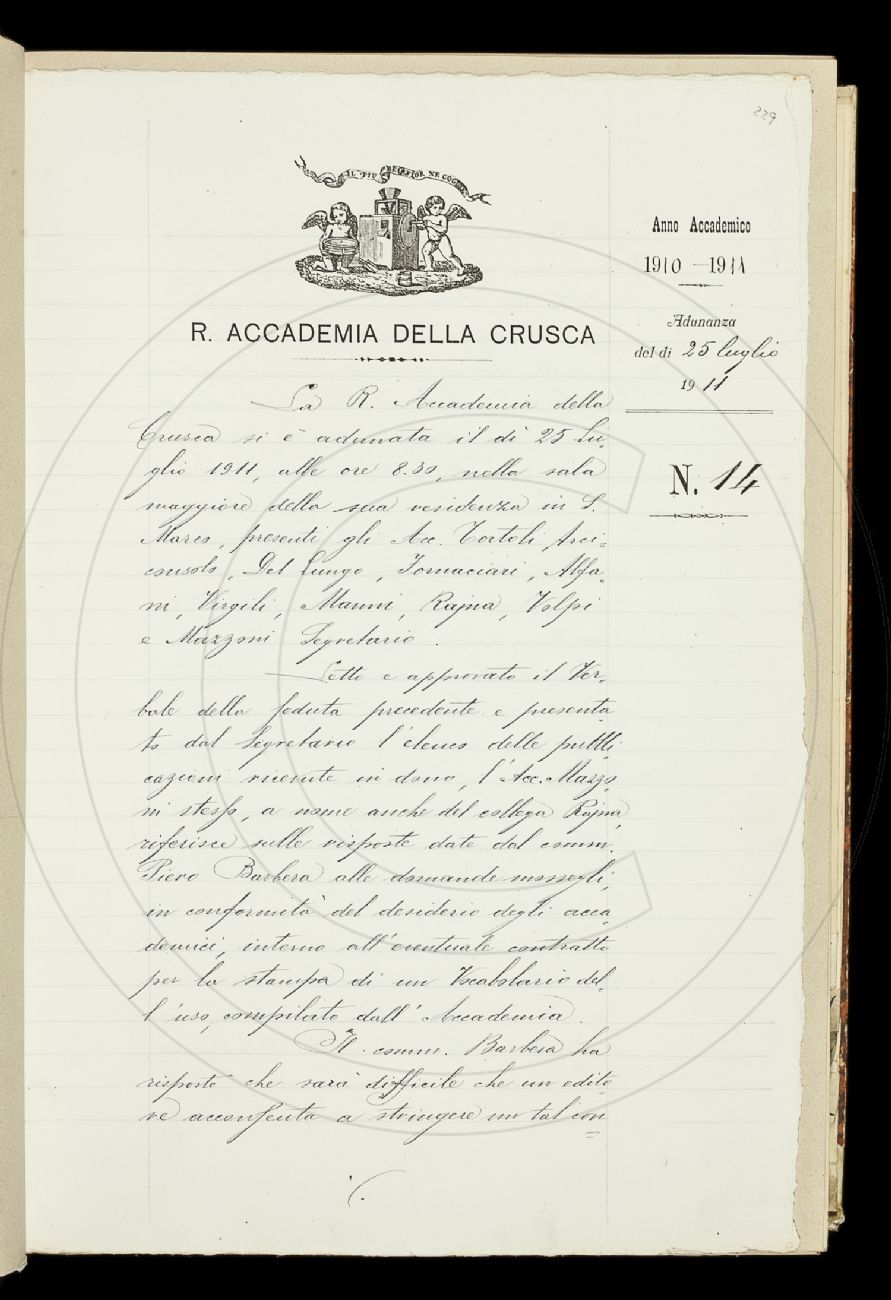 229
IL PIÙ BEL FIOR NE COGLIE
Anno Accademico
1910-1911
Adunanza
del dì 25 luglio
1911
N. 14
R. ACCADEMIA DELLA CRUSCA
La R. Accademia della
Crusca si è adunata il dì 25 Lu-
glio 1911, alle ore 8.30, nella sala
maggiore della sua residenza in S.
Marco, presenti gli Acc. Tortoli Arci-
consolo, Del Lungo, Fornaciari, Alfa-
ni, Virgili, Manni, Rajna, Volpi
e Mazzoni Segretario.
Letto e approvato il Ver-
bale della seduta precedente e presenta-
to dal Segretario l'elenco delle pubbli-
cazioni ricevute in dono, l'Acc. Mazzo-
ni stesso, a nome anche del collega Rajna,
riferisce sulle risposte date dal comm.
Piero Barbèra alle domande mossegli,
in conformità del desiderio degli acca-
demici, intorno all'eventuale contratto
per la stampa di un Vocabolario del-
l'uso, compilato dall'Accademia.
Il comm. Barbèra ha
risposto che sarà difficile che un edito-
re acconsenta a stringere un tal con=